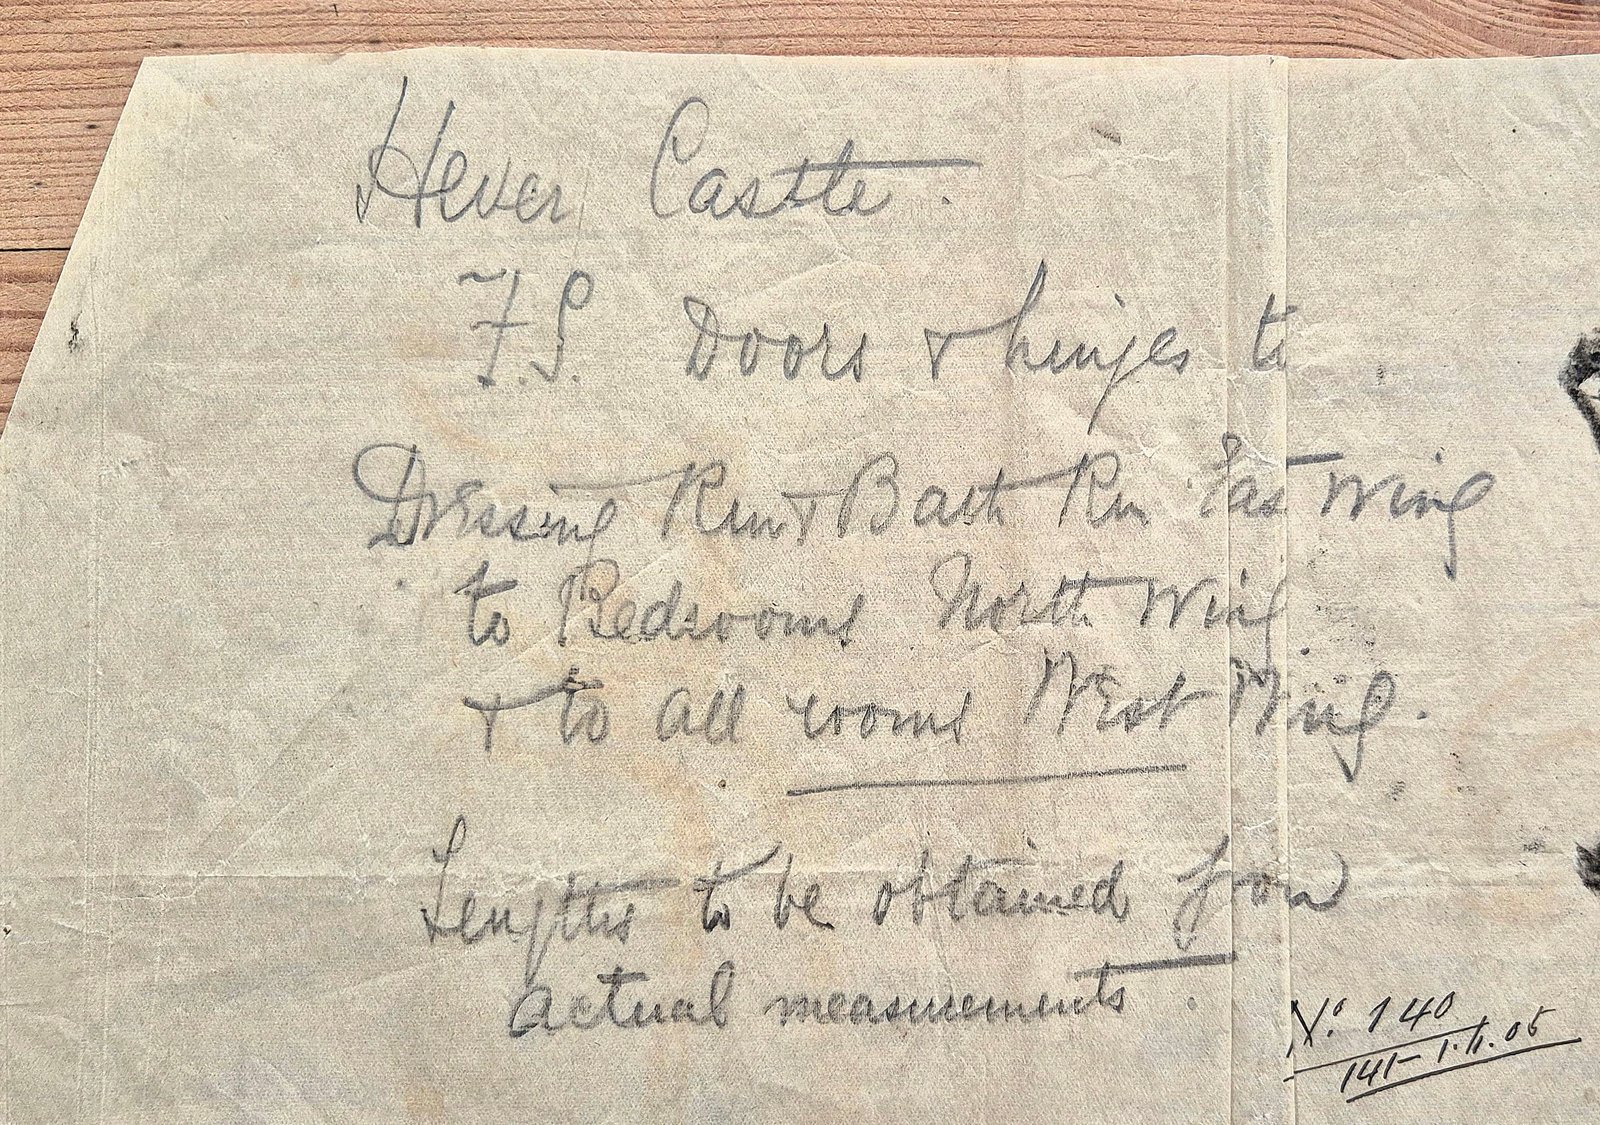 Hever Castle.
F.S. Doors & hinges to
Dressing Rm & Bath Rm East Wing
to Bedrooms North Wing
& to all rooms West Wing.
Lengths to be obtained from
actual measurements.
No. 140
141 - 1.11.05